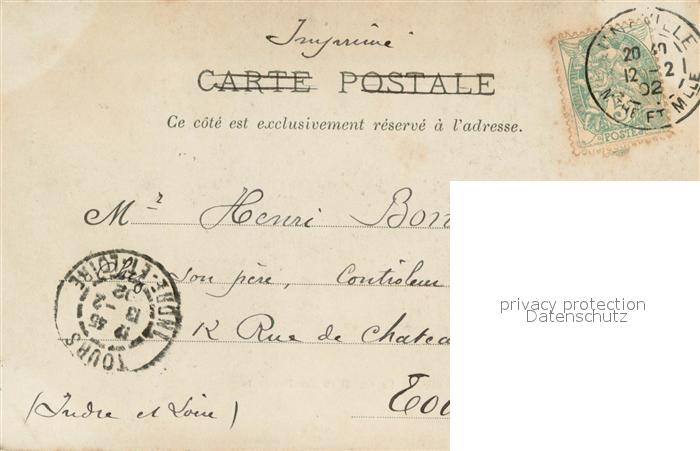 Imprimé
CARTE POSTALE
Ce côté est exclusivement réservé à l'adresse.
20 40
12 -2
02
ET MLLE
POSTES
Mr Henri Bon
Chez son père, Contrôleur
12 Rue de Chatea
Tou
(Indre et Loire)
TOURS
INDRE-ET-LOIRE
17 45
13 -2
02
privacy protection
Datenschutz